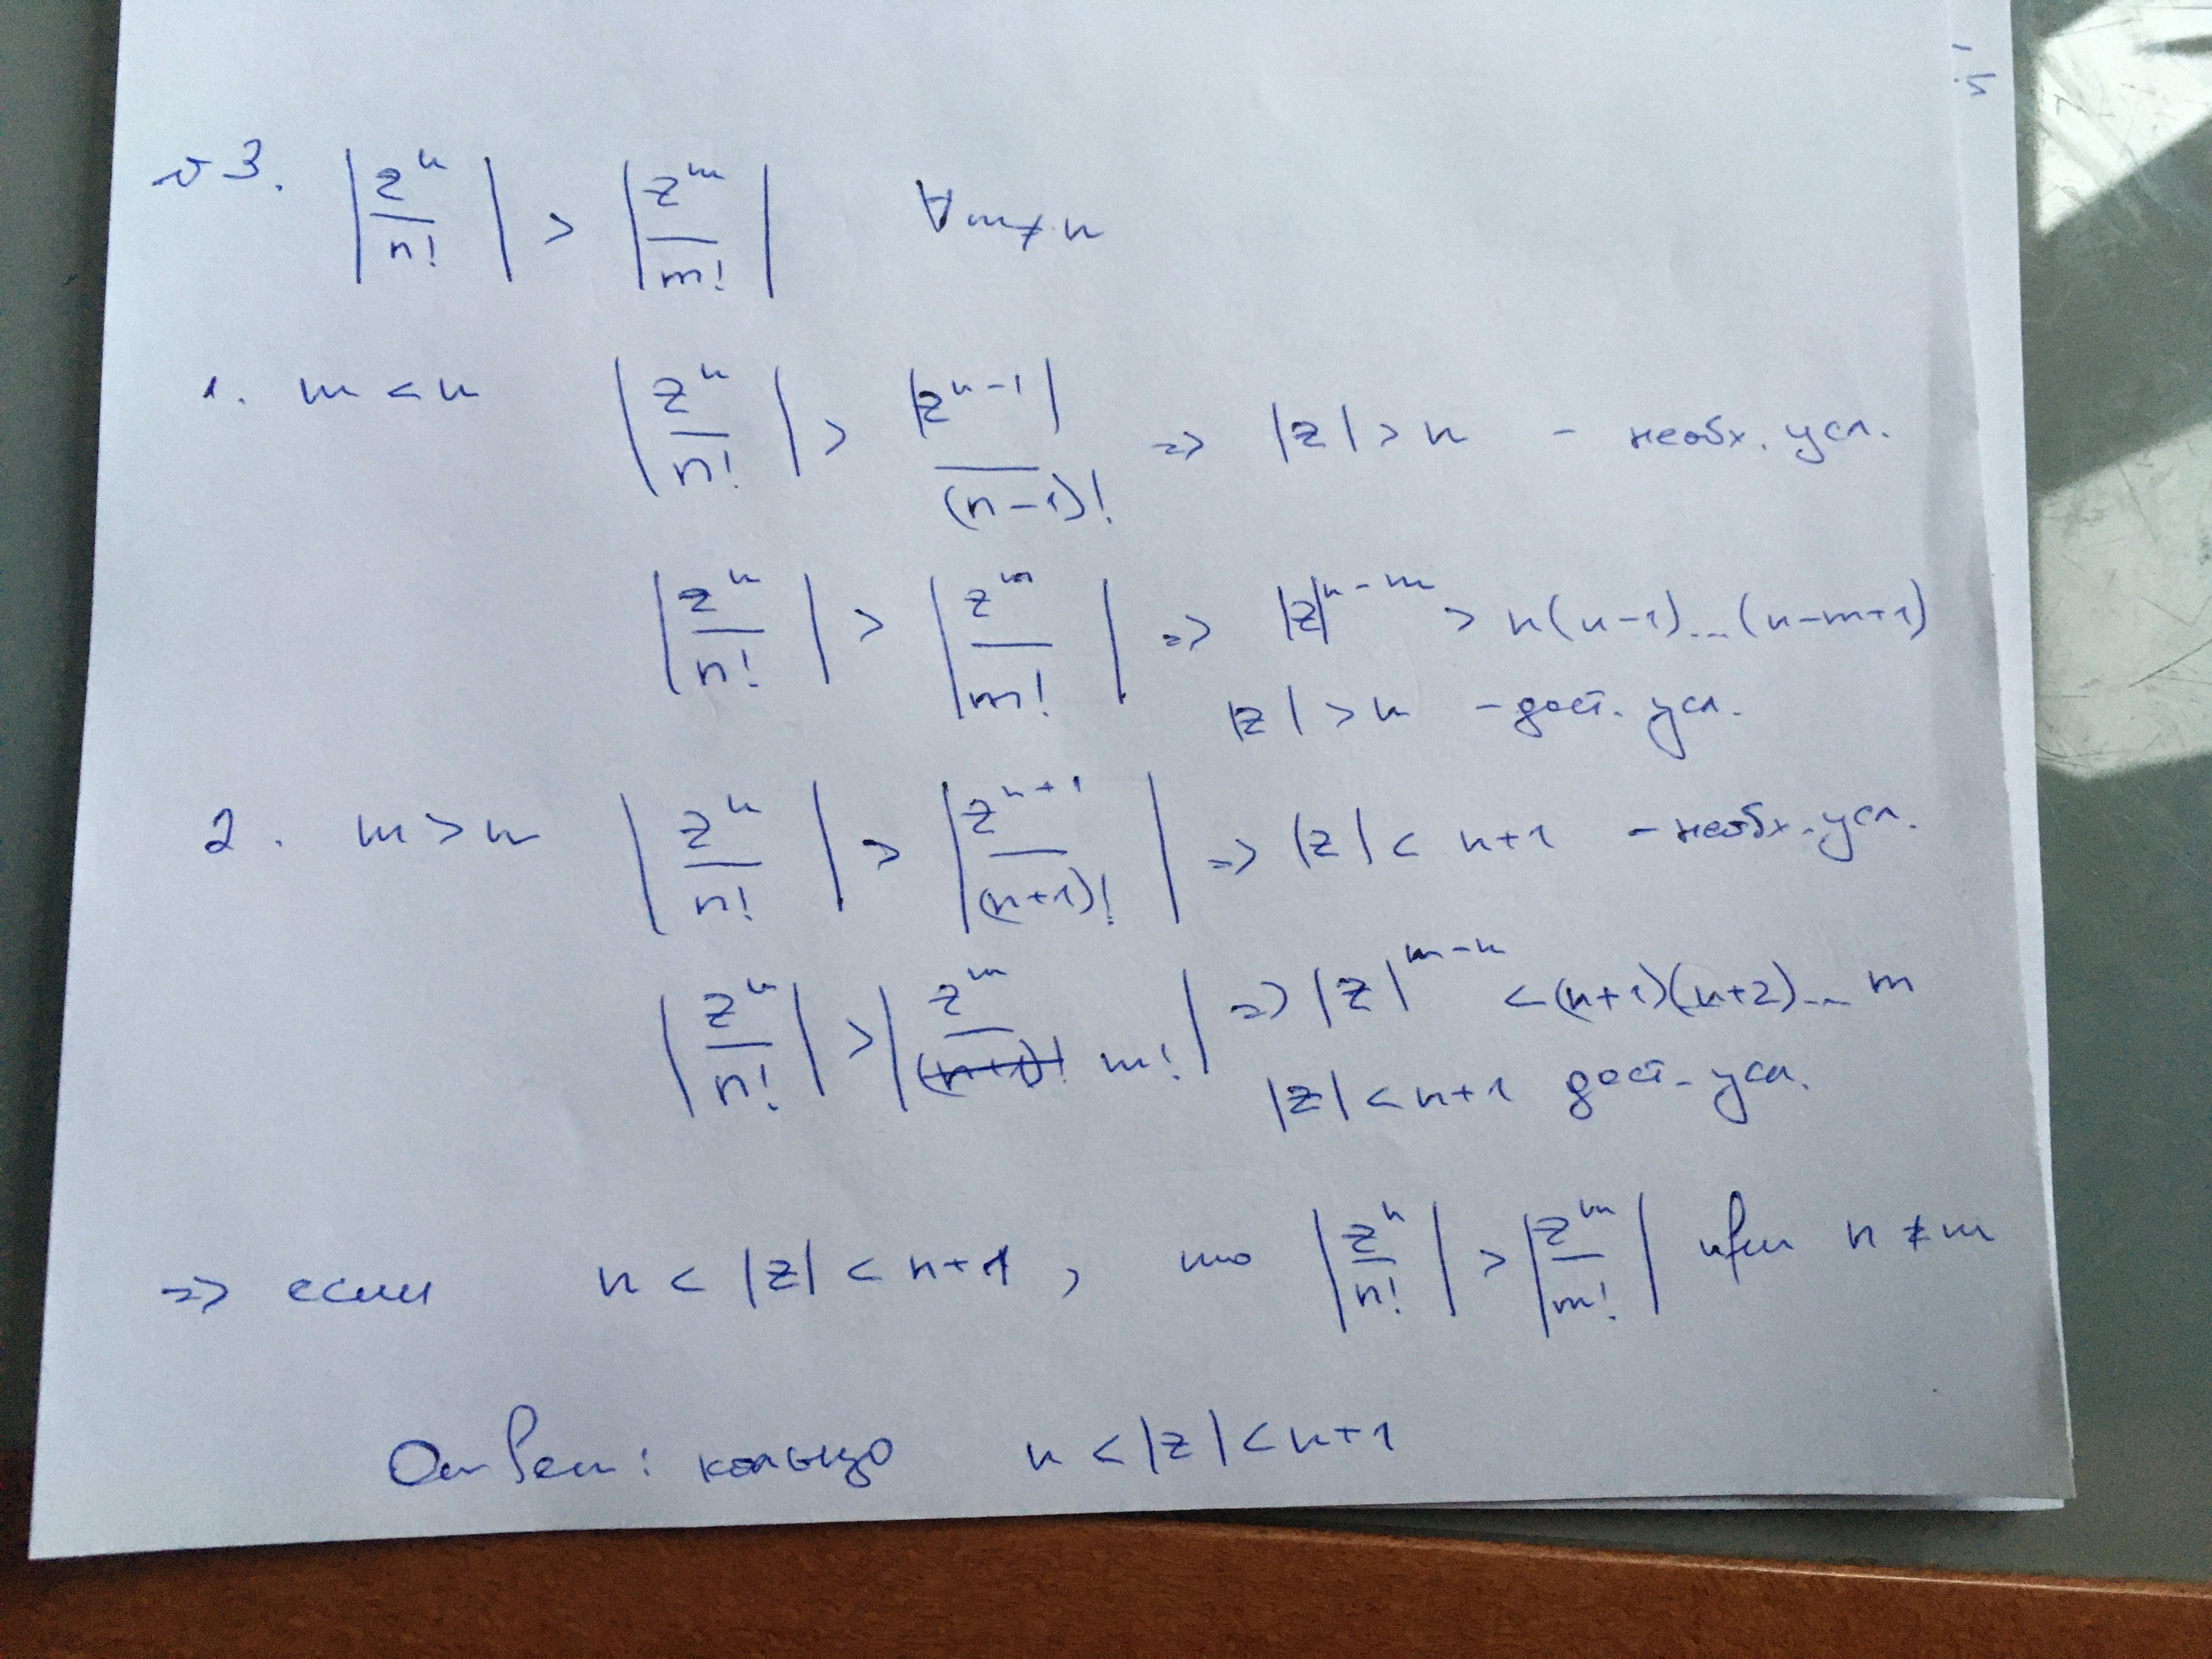 №3. |z^n / n!| > |z^m / m!| ∀m≠n
1. m < n |z^n / n!| > |z^{n-1}| / (n-1)! => |z| > n - необх. усл.
|z^n / n!| > |z^m / m!| => |z|^{n-m} > n(n-1)...(n-m+1)
|z| > n - дост. усл.
2. m > n |z^n / n!| > |z^{n+1} / (n+1)!| => |z| < n+1 - необх. усл.
|z^n / n!| > |z^m / m!| => |z|^{m-n} < (n+1)(n+2)... m
|z| < n+1 дост. усл.
=> если n < |z| < n+1, то |z^n / n!| > |z^m / m!| при n ≠ m
Ответ: кольцо n < |z| < n+1